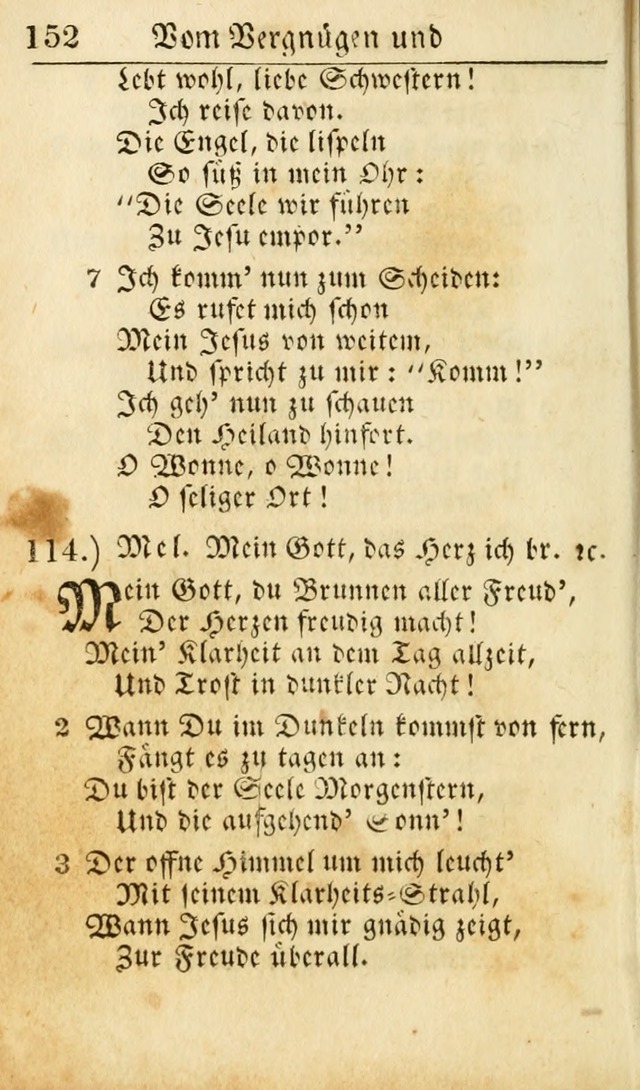 152 Vom Vergnügen und
Lebt wohl, liebe Schwestern!
Ich reise davon.
Die Engel, die lispeln
So süß in mein Ohr:
"Die Seele wir führen
Zu Jesu empor."
7 Ich komm' nun zum Scheiden:
Es rufet mich schon
Mein Jesus von weitem,
Und spricht zu mir: "Komm!"
Ich geh' nun zu schauen
Den Heiland hinfort.
O Wonne, o Wonne!
O seliger Ort!
114.) Mel. Mein Gott, das Herz ich br. ꝛc.
Mein Gott, du Brunnen aller Freud',
Der Herzen freudig macht!
Mein' Klarheit an dem Tag allzeit,
Und Trost in dunkler Nacht!
2 Wann Du im Dunkeln kommst von fern,
Fängt es zu tagen an:
Du bist der Seele Morgenstern,
Und die aufgehend' Sonn'!
3 Der offne Himmel um mich leucht'
Mit seinem Klarheits-Strahl,
Wann Jesus sich mir gnädig zeigt,
Zur Freude überall.